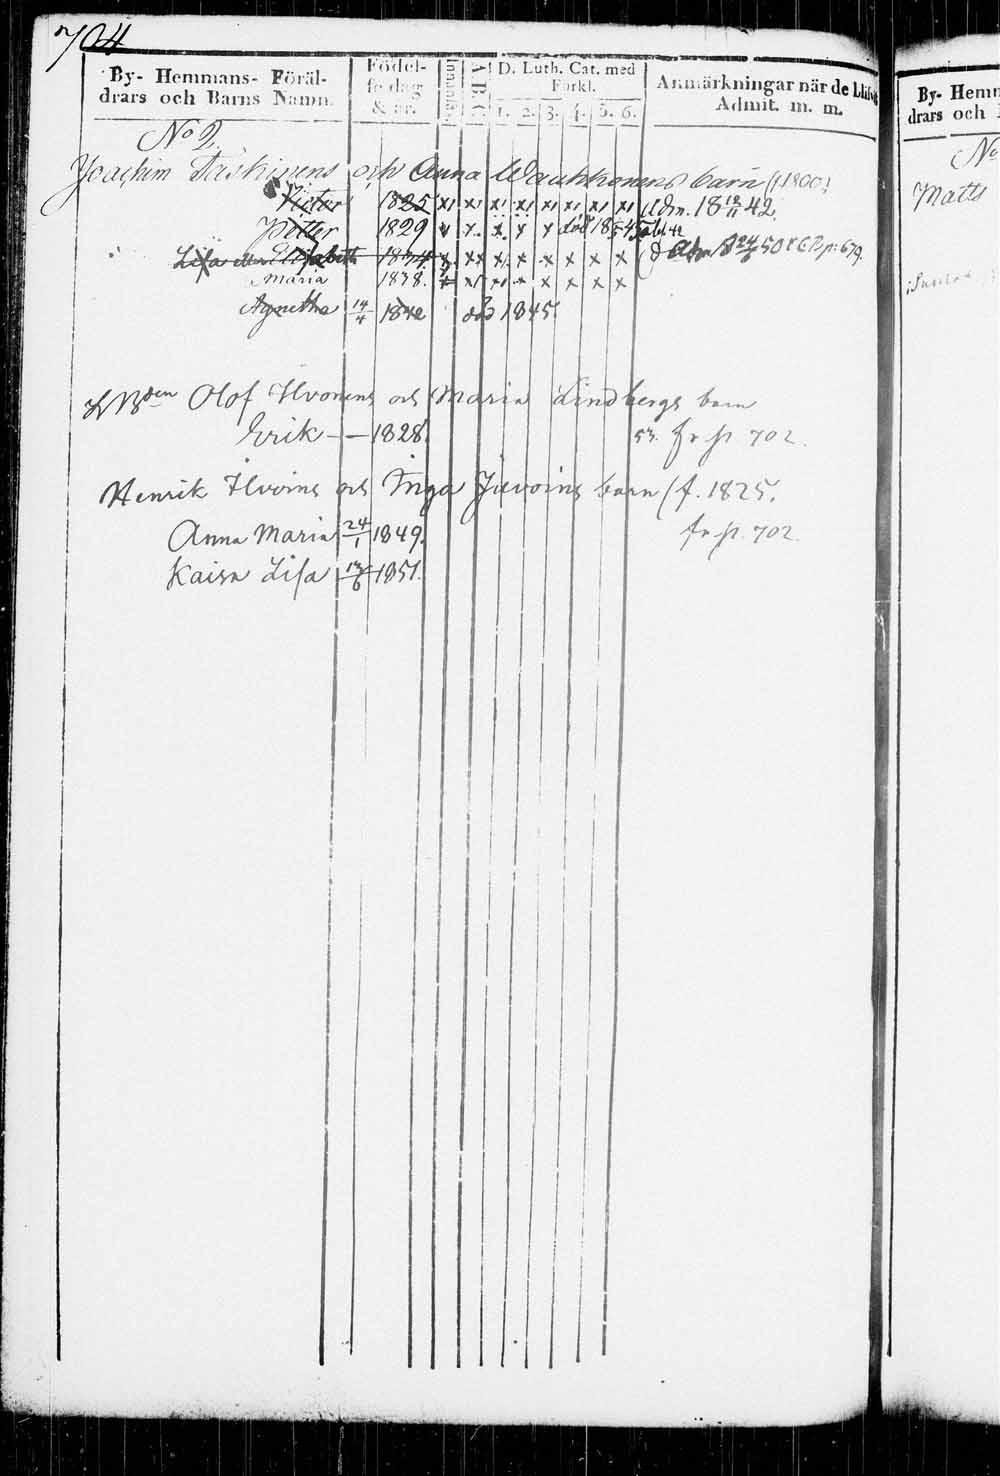 704
By- Hemmans- Föräl-
drars och Barns Namn.
Födel-
& år.
Innanläs
A B C
D. Luth. Cat. med
Förkl.
1. 2. 3. 4. 5. 6.
Anmärkningar när de blifv
Admit. m. m.
No 2.
Joachim Taskinens och Anna Wauhkonens barn (f. 1800)
Victor 1825 x x x x x x x x Adm. 18 42
Petter 1829 x x x x x död 18
Lisa eller Elisabeth 1834 x x x x x x x x Adm 18 24 50 p: 679.
Maria 1838. x x x x x x x x
Agnetha 14/4 1842 död 1845.
Olof Ilvonens och Maria Lindbergs barn
Erik — 1828. 53. fr p. 702.
Henrik Ilvoins och Inga barn (f. 1825.
Anna Maria 24/1 1849. fr p. 702.
Kaisa Lisa 13/6 1851.
By- Hemm
drars och
No
Matts